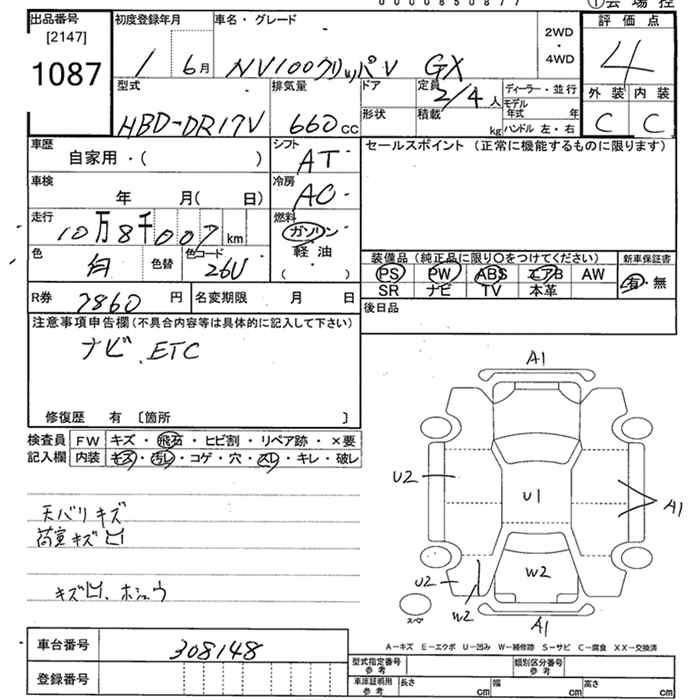 0000850877 ①会場控
出品番号 初度登録年月 車名・グレード 評価点
[2147] 2WD
1087 1 6月 NV100クリッパV GX ・ 4WD 4
型式 排気量 ドア 定員 2/4人 ディーラー・並行 外装 内装
HBD-DR17V 660cc 形状 積載 kg モデル年式 年 C C
ハンドル 左・右
車歴 シフト セールスポイント (正常に機能するものに限ります)
自家用・( ) AT
車検 冷房
年 月( 日) AC
走行 燃料
10万8千007km ガソリン
色 色替 色コード 軽油 装備品(純正品に限り○をつけてください) 新車保証書
白 26U ( ) PS PW ABS エアB AW 有・無
SR ナビ TV 本革
R券 7860円 名変期限 月 日 後日品
注意事項申告欄(不具合内容等は具体的に記入して下さい)
ナビ ETC
修復歴 有 〔箇所 〕
検査員 FW キズ・飛石・ヒビ割・リペア跡・×要
記入欄 内装 キズ・汚レ・コゲ・穴・スレ・キレ・破レ
A1
U2 U1 A1
天バリキズ
荷室キズ凹
W2
U2 W2
キズ凹、ホシュウ
スペ A1
A－キズ E－エクボ U－凹み W－補修跡 S－サビ C－腐食 XX－交換済
車台番号 308148
型式指定番号 参考 類別区分番号 参考
登録番号 車庫証明用 参考 長さ cm 幅 cm 高さ cm